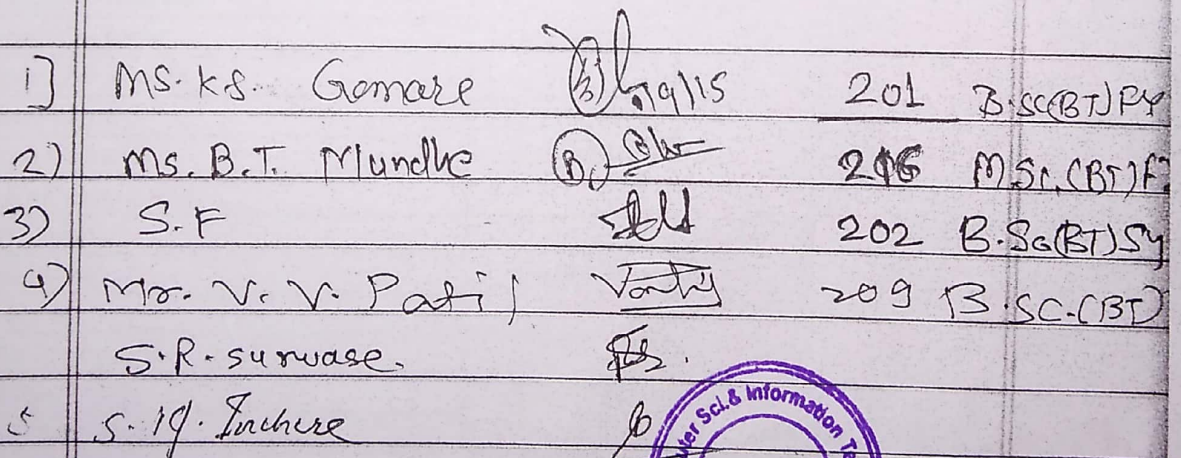 1] Ms. K.S. Gomare 201 B.SC(BT) FY
2) Ms. B.T. Mundhe 216 M.Sc. (BT) F
3) S.F 202 B.Sc(BT) Sy
4) Mr. V. V. Patil 209 B.SC.(BT)
S.R. surwase.
5 S. Inchure
ter Sci. & Information Te